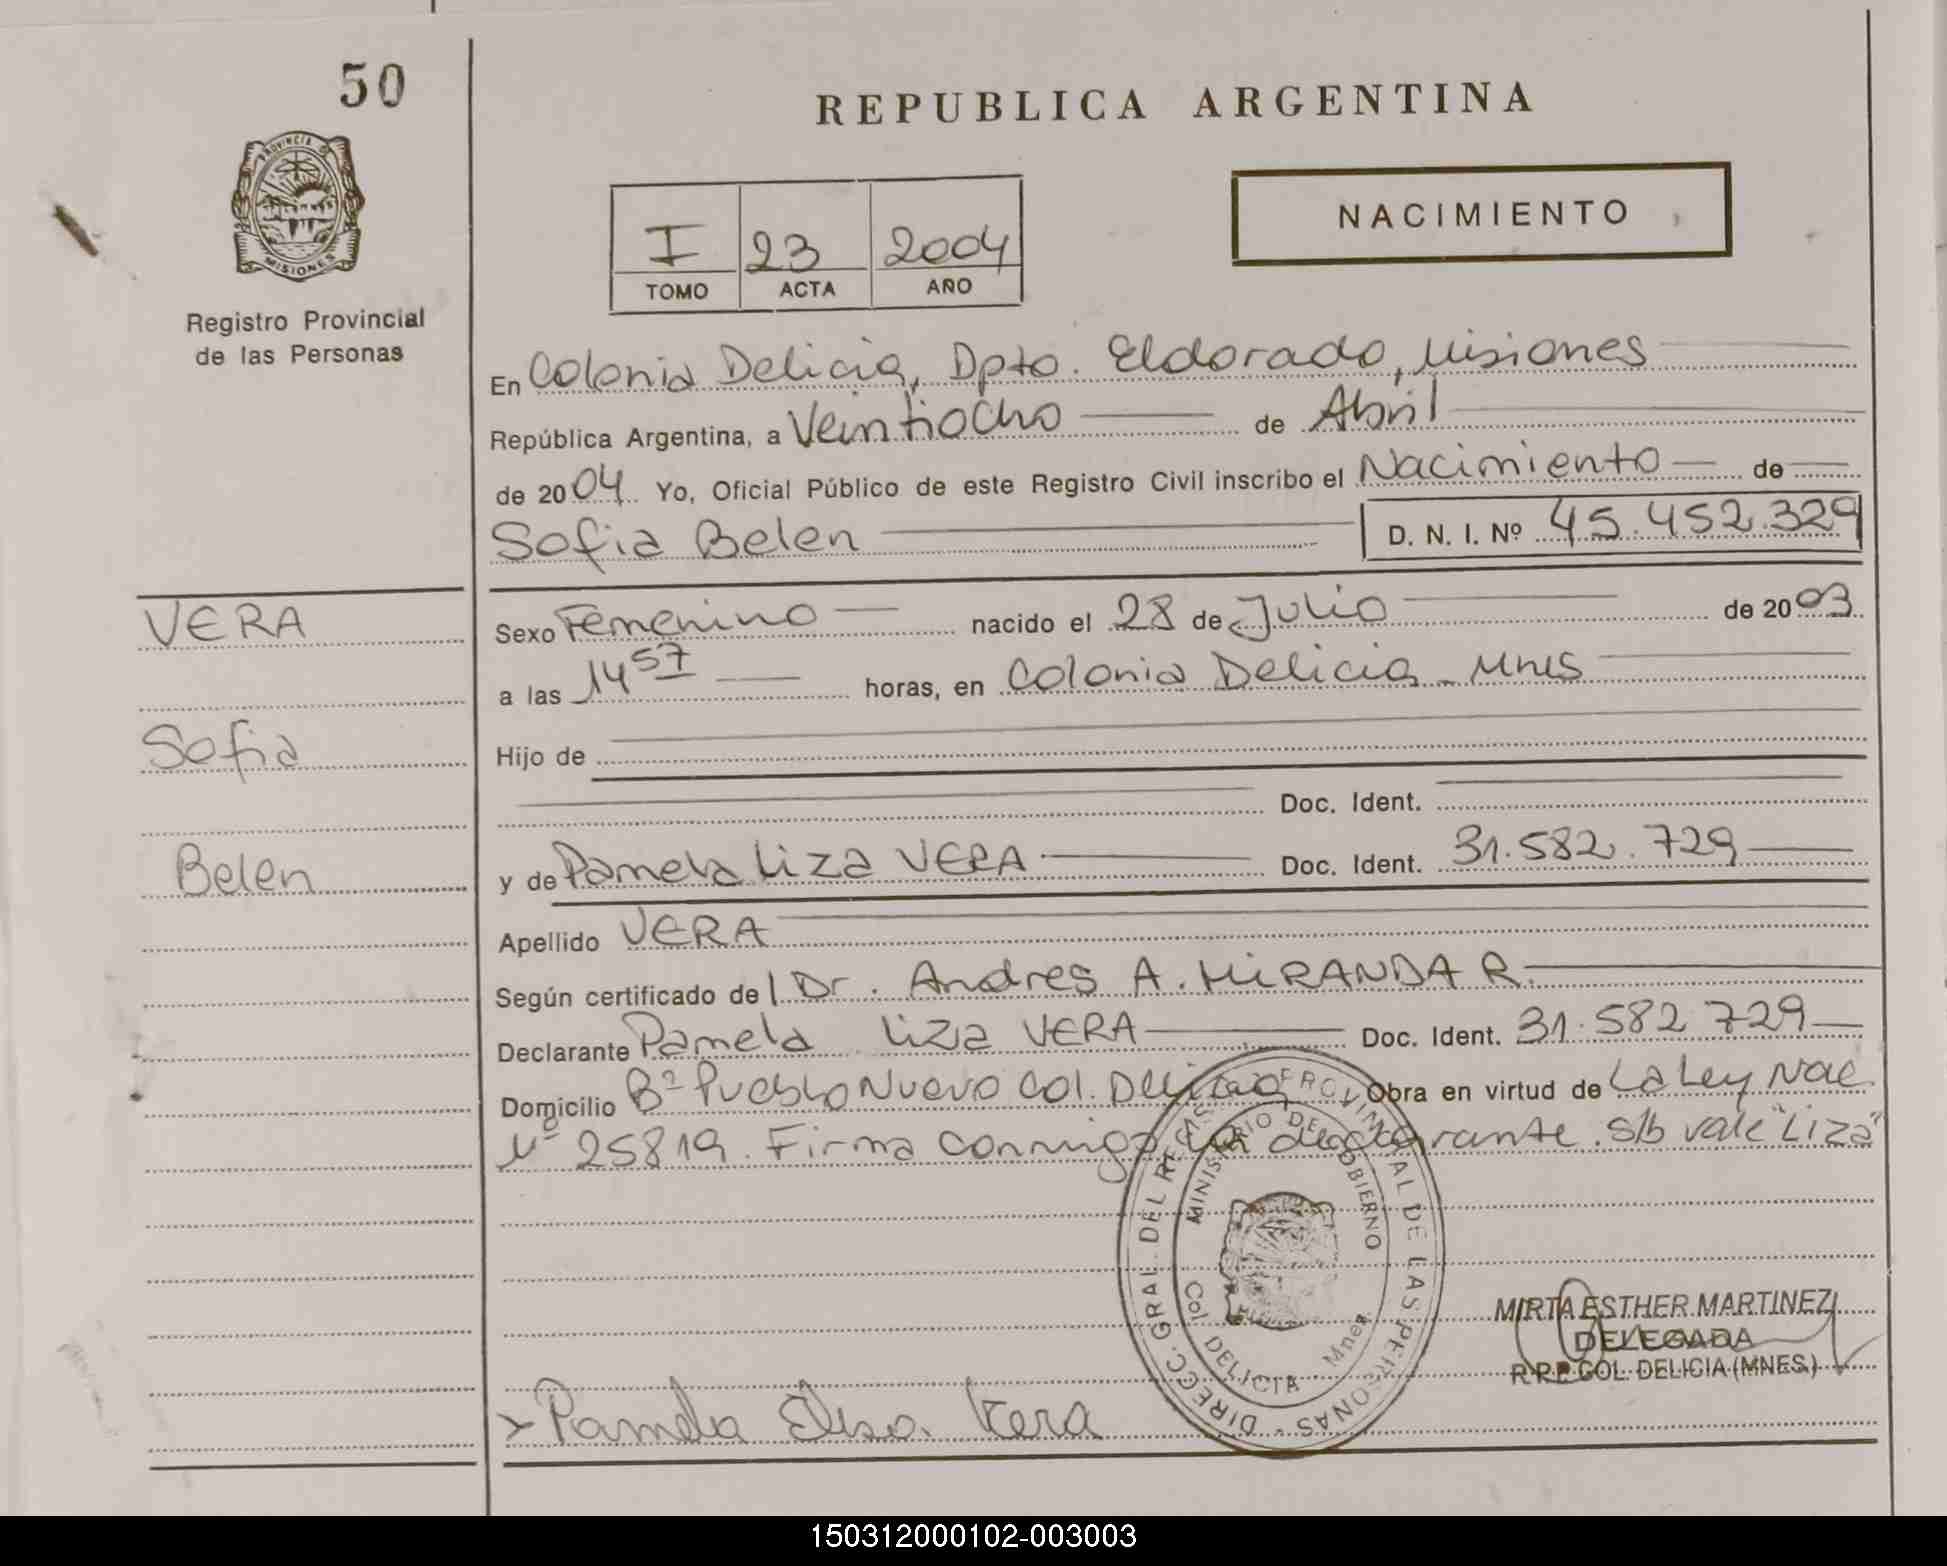 50
PROVINCIA DE
MISIONES
Registro Provincial
de las Personas
REPUBLICA ARGENTINA
I 23 2004
TOMO ACTA AÑO
NACIMIENTO
En Colonia Delicia, Dpto. Eldorado, Misiones
República Argentina, a Veintiocho de Abril
de 2004 Yo, Oficial Público de este Registro Civil inscribo el Nacimiento de
Sofia Belen D. N. I. Nº 45.452.329
VERA
Sexo Femenino nacido el 28 de Julio de 2003
a las 14 57 horas, en Colonia Delicia - Mnes
Sofia
Hijo de
Doc. Ident.
Belen
y de Pamela Liza VERA Doc. Ident. 31.582.729
Apellido VERA
Según certificado del Dr. Andres A. MIRANDA R.
Declarante Pamela Liza VERA Doc. Ident. 31.582.729
Domicilio Bº Pueblo Nuevo Col. Delicia Obra en virtud de La Ley Nac
Nº 25819. Firma conmigo la declarante. s/b vale "Liza"
DIRECC. GRAL. DEL REGIS PROVINCIAL DE LAS PERSONAS
MINISTERIO DE GOBIERNO
Col. DELICIA Mnes.
MIRTA ESTHER MARTINEZ
DELEGADA
R.P.P. COL. DELICIA (MNES.)
Pamela Elisa Vera
150312000102-003003